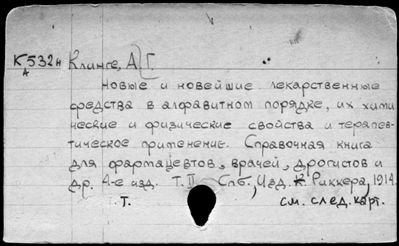 К532н Клинге, А[Г.
А
новые и новейшие лекарственные
средства в алфавитном порядке, их хими
ческие и физические свойства и терапев-
тическое применение. Справочная книга
для фармацевтов, врачей, дрогистов и
др. 4-е изд. Т. II Спб., Изд. К. Риккера, 1914.
Т. см. след. карт.